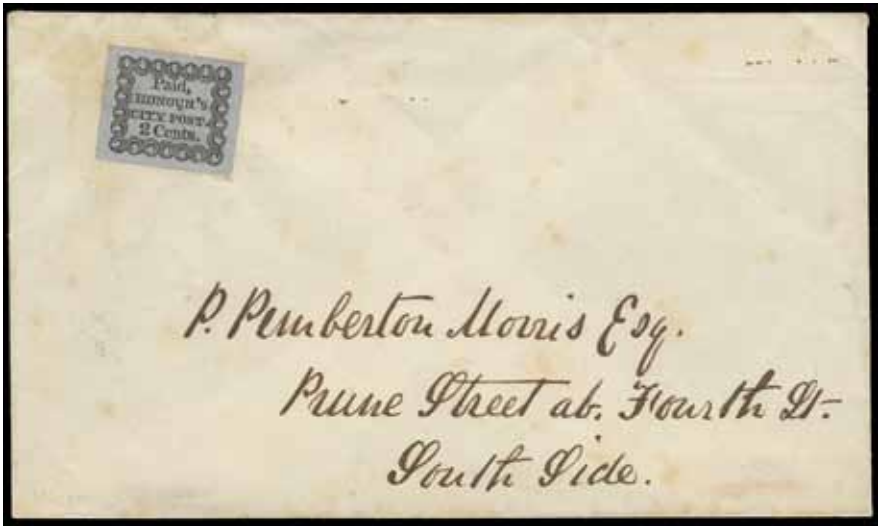 Paid,
HONOUR'S
CITY POST.
2 Cents.
P. Pemberton Morris Esq.
Prune Street ab. Fourth St.
South Side.